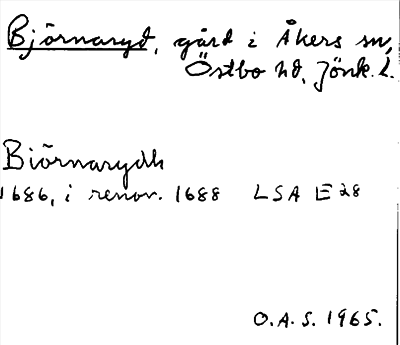 Björnaryd, gård i Åkers sn,
Östbo hd, Jönk. l.
Biörnarydh
1686, i renov. 1688 LSA E 28
O.A.S. 1965.